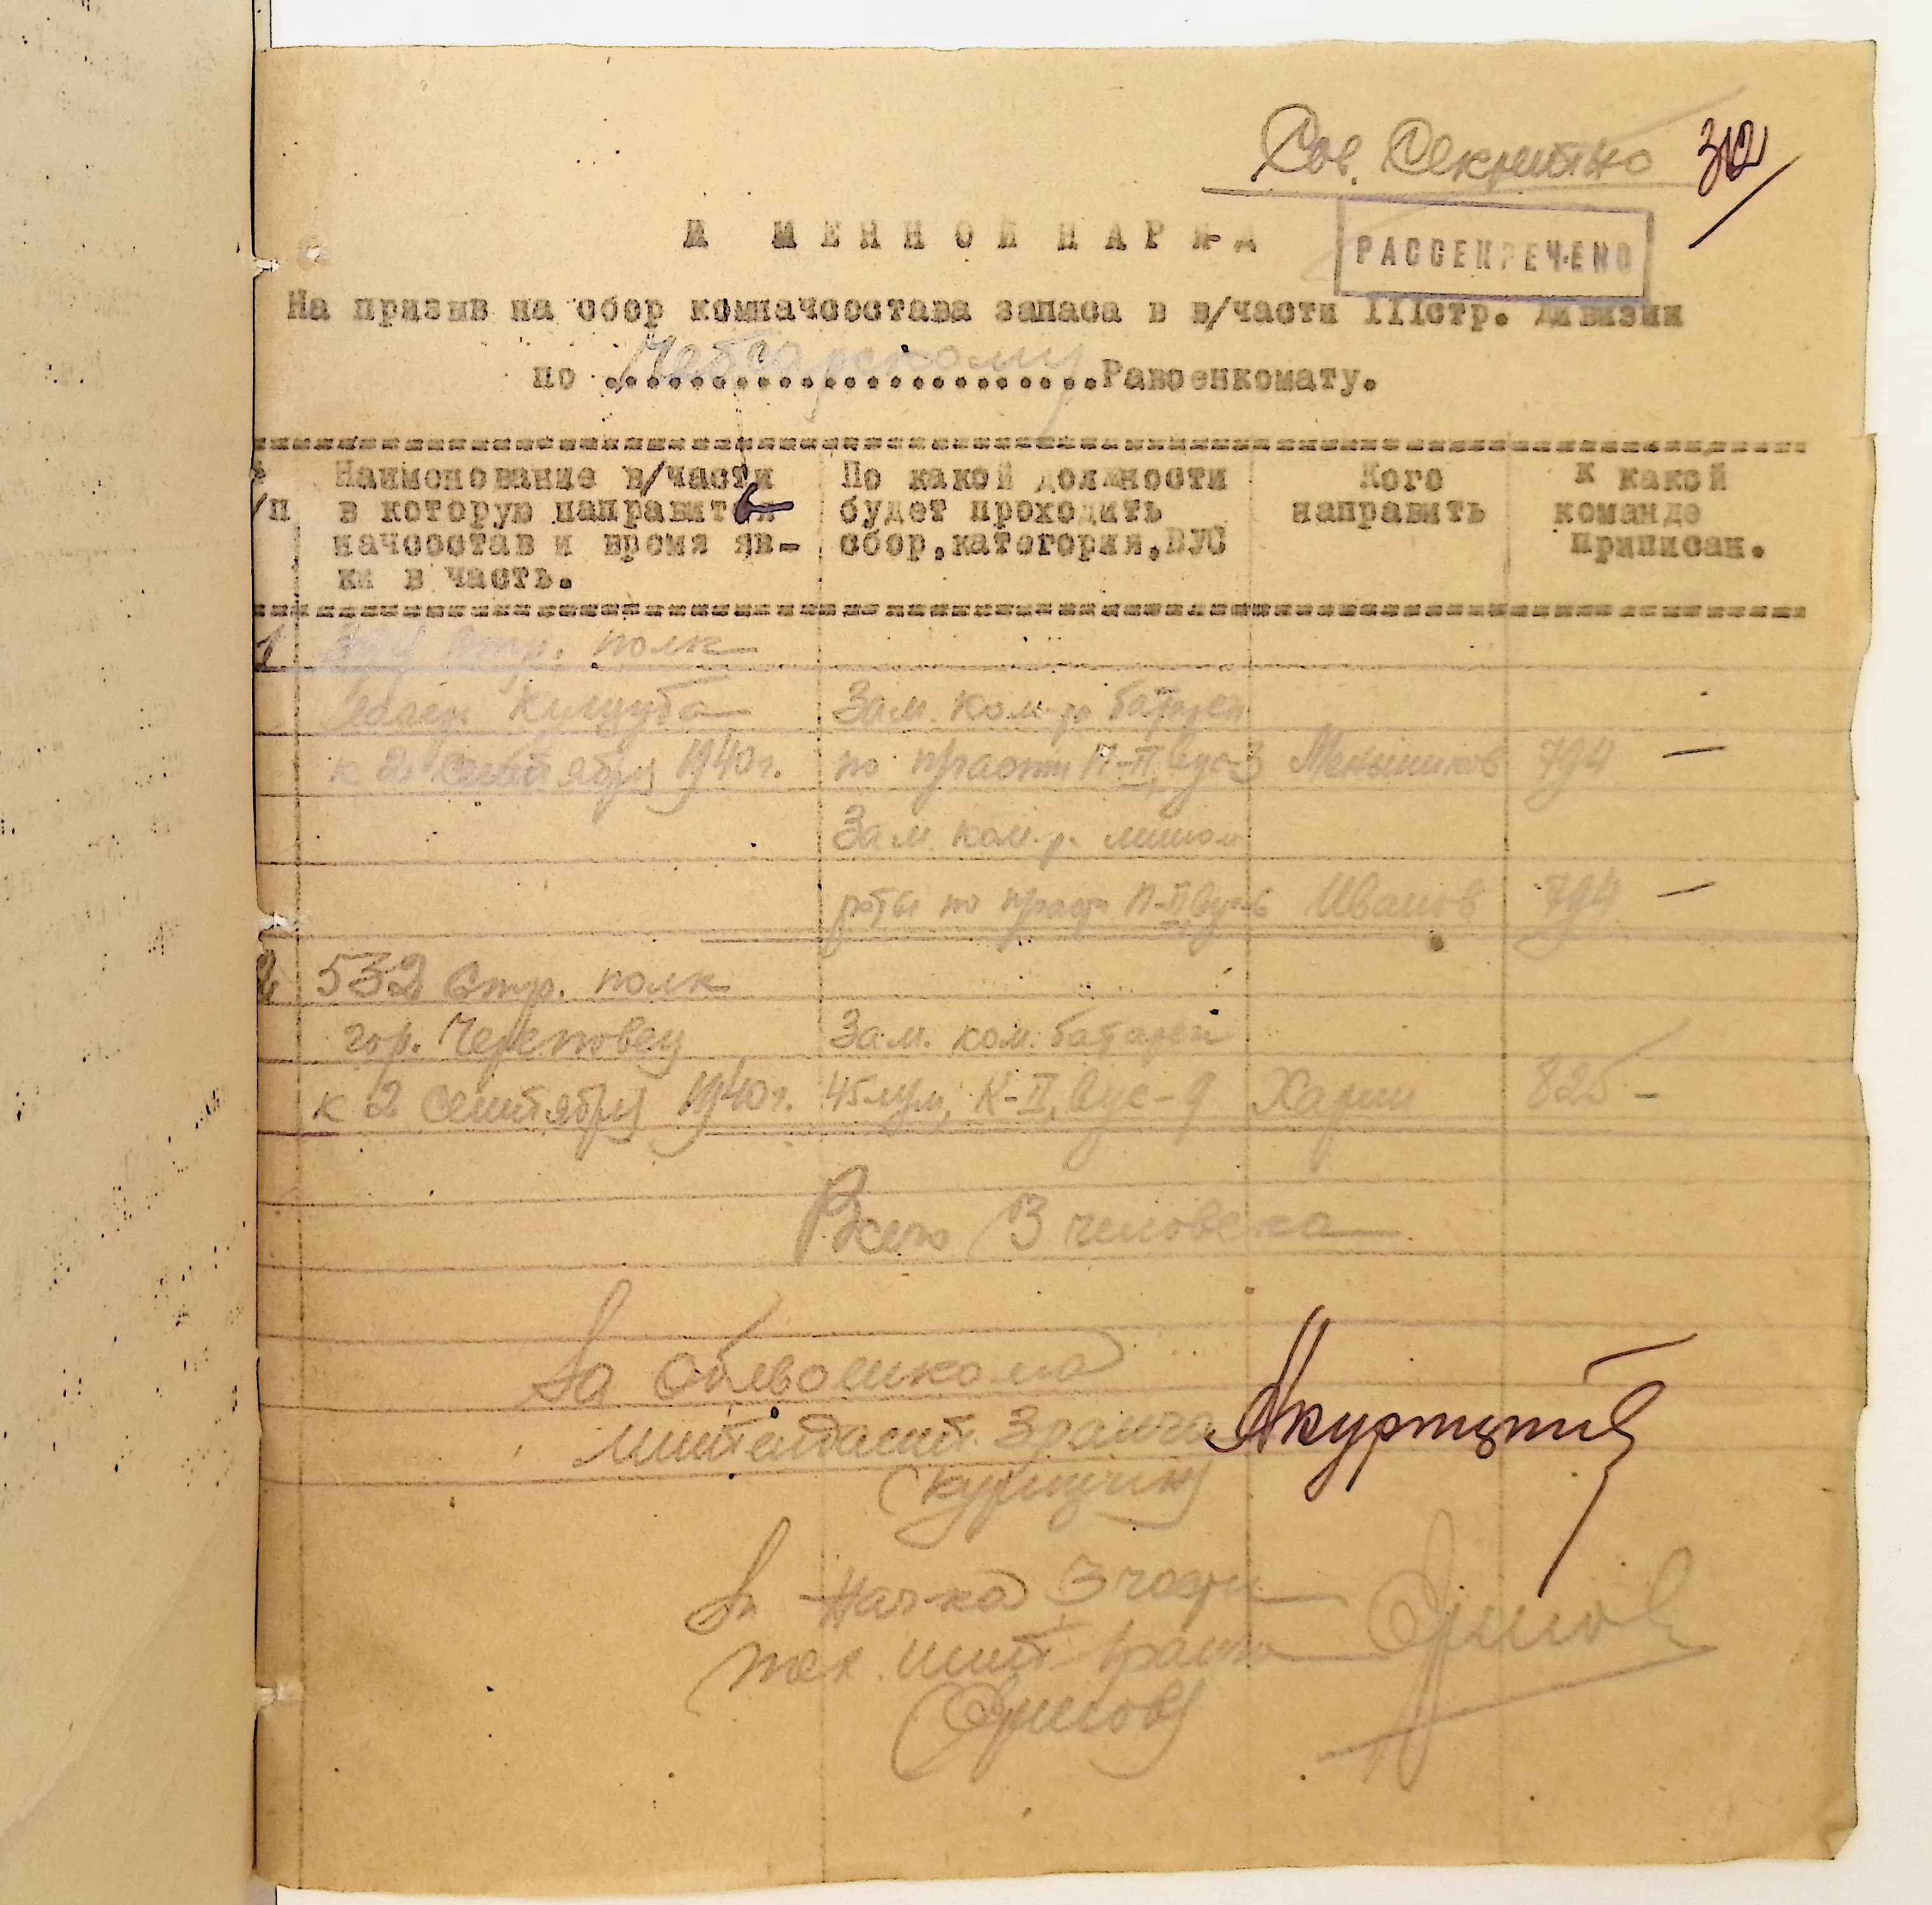 Сов. Секретно 312
И МЕННОЙ НАРЯД
РАССЕКРЕЧЕНО
На призыв на сбор комначсостава запаса в в/части IIIстр. Дивизии
по Чебсарскому Равоенкомату.
/п Наименование в/части По какой должности Кого К какой
в которую направить будет проходить направить команде
начсостав и время яв- сбор,категория,ВУС приписан.
ки в часть.
1 стр. полк
Зам. ком-ра батареи
к 2 сентября 1940г. по П-II, вус-3 Меньшиков 794 —
Зам. ком. р. мином
роты по П-II, вус-6 Иванов 794 —
2 532 Стр. полк
гор. Череповец Зам. ком. батареи
к 2 сентября 1940г. 45 м/м, К-II, вус-9 Харин 825 —
Всего 3 человека
За Облвоенкома
интендант 3 ранга
За Нач-ка 3 части
тех. инт. ранга